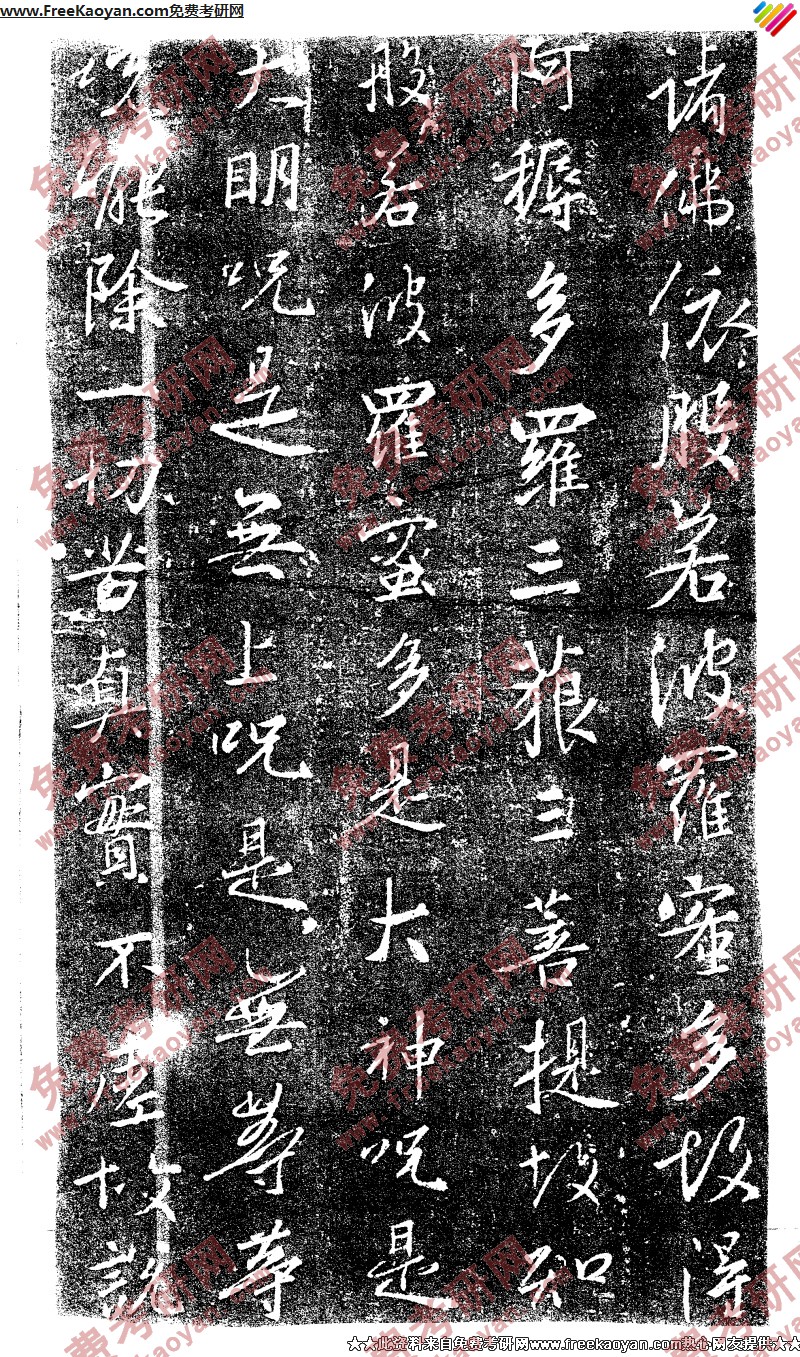 www.FreeKaoyan.com免费考研网
諸佛依般若波羅蜜多故得
阿耨多羅三藐三菩提故知
般若波羅蜜多是大神呪是
大明呪是無上呪是無等等
呪能除一切苦真實不虛故說
★★此资料来自免费考研网www.freekaoyan.com热心网友提供★★
免费考研网
www.freekaoyan.com